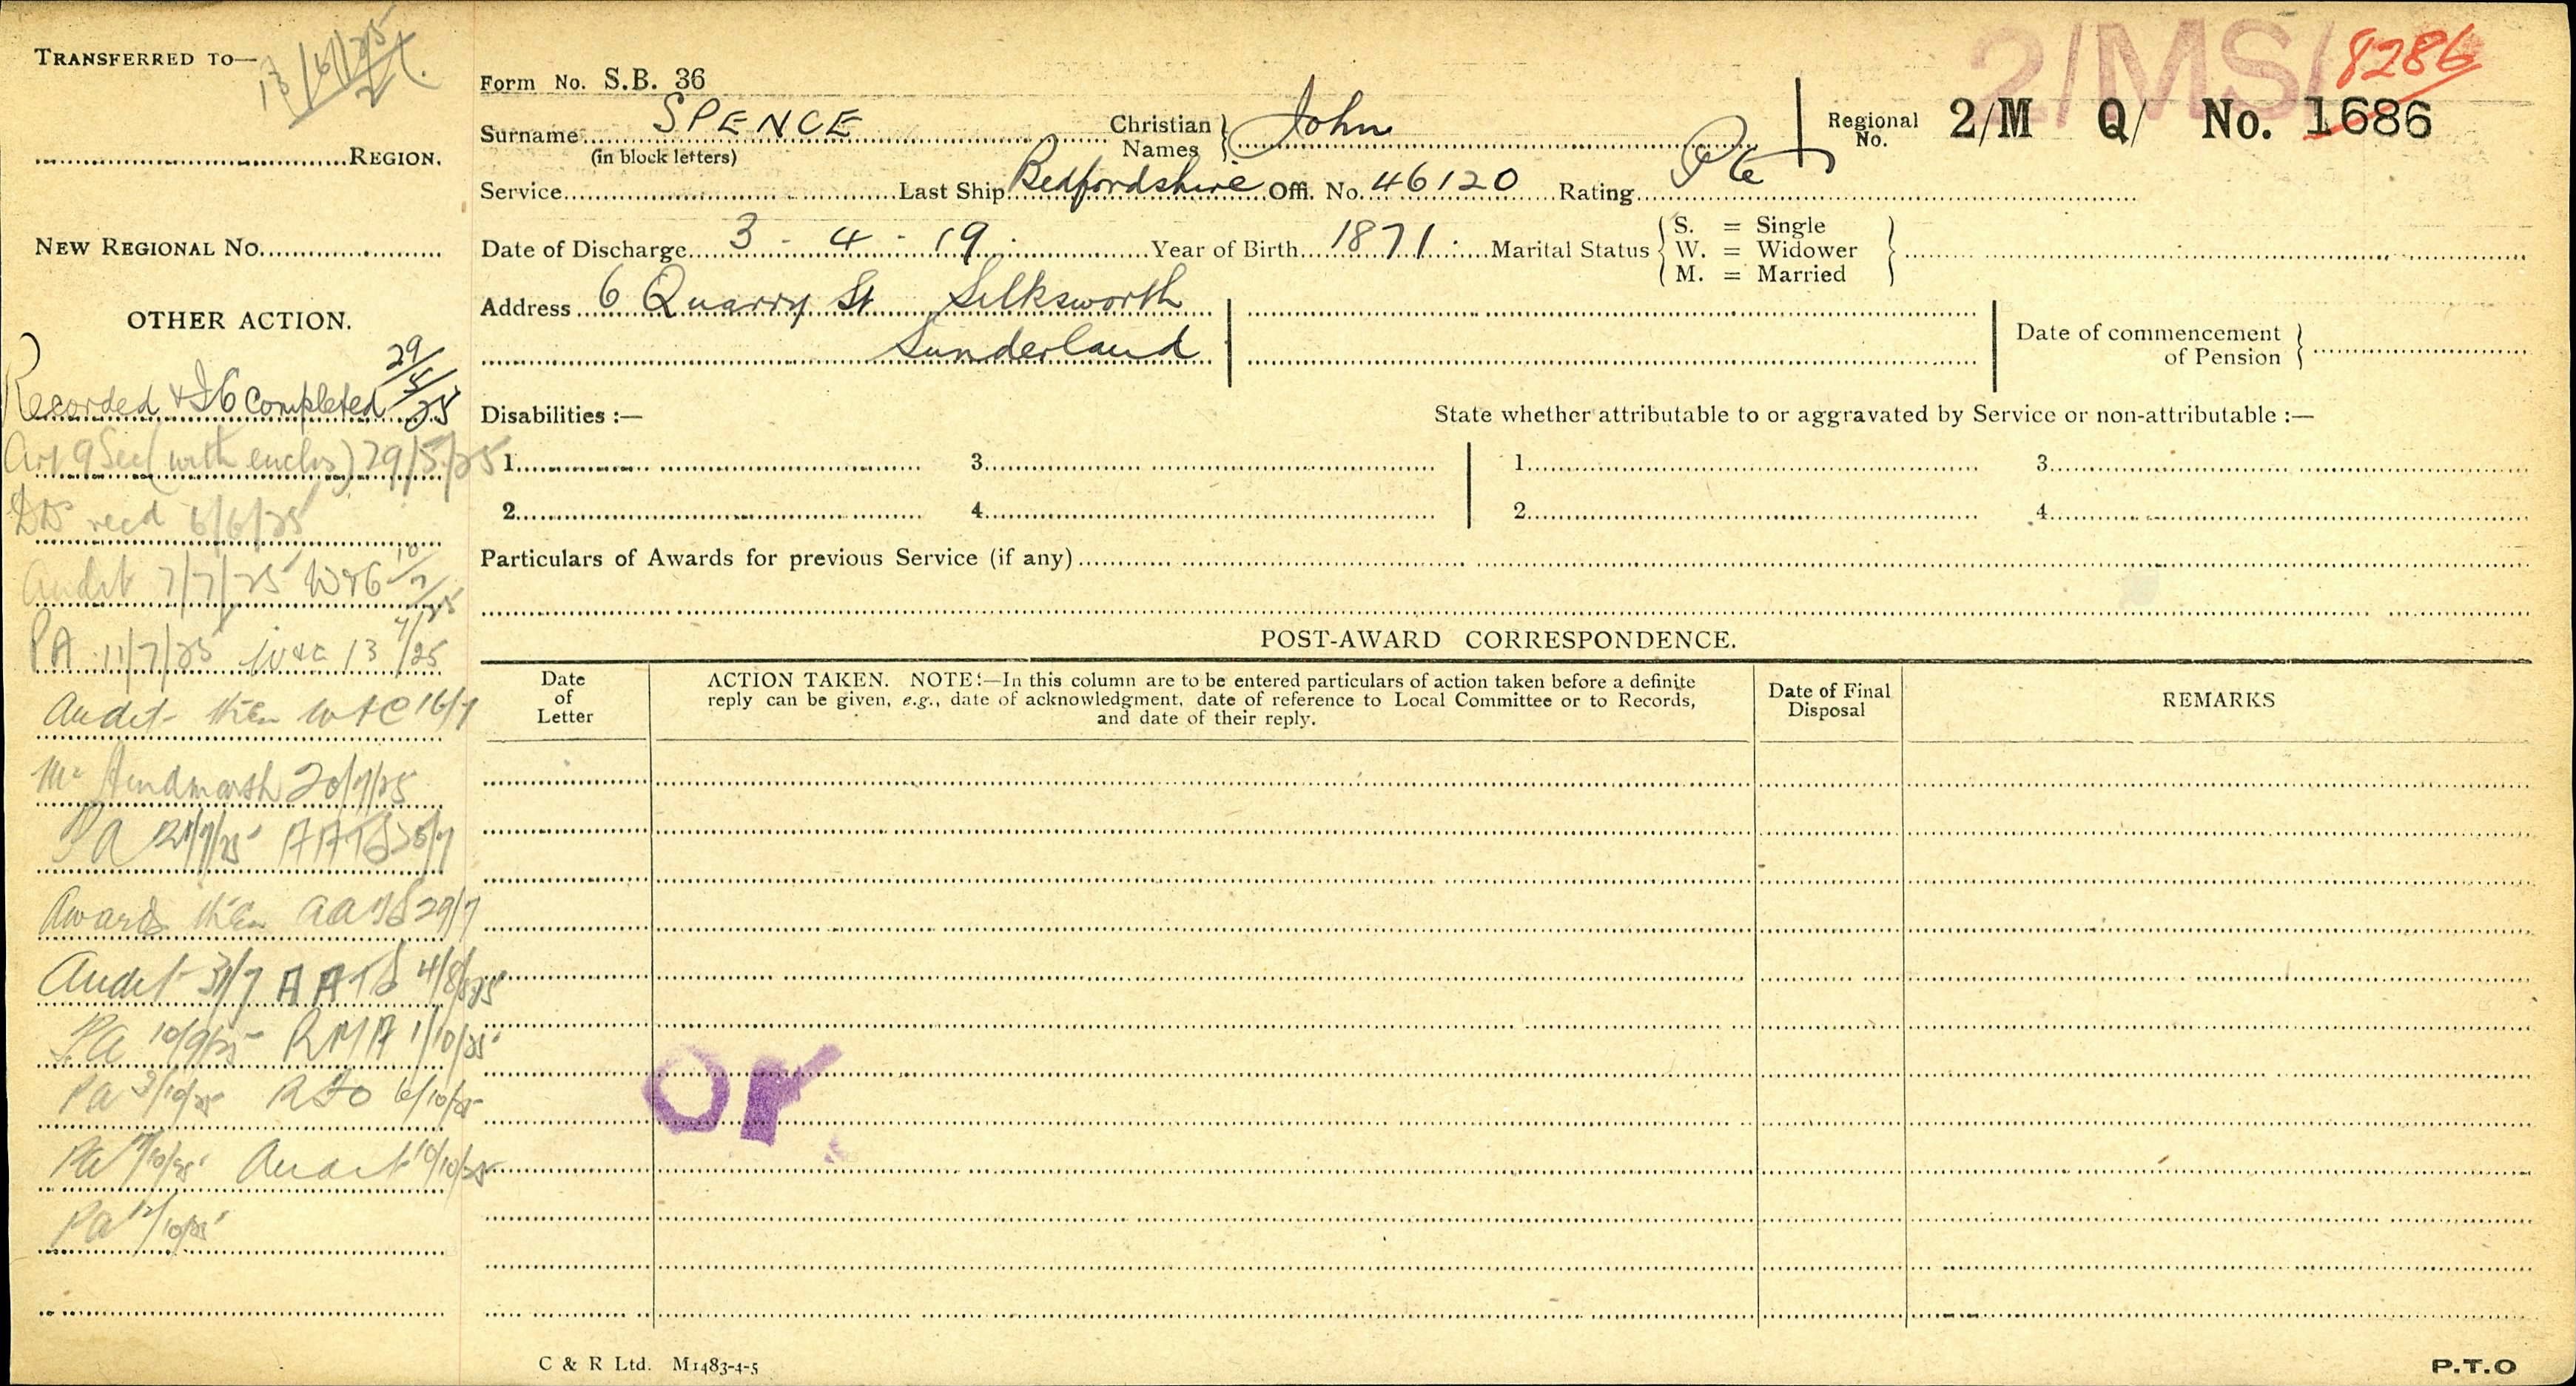 TRANSFERRED TO—
REGION.
NEW REGIONAL No.
OTHER ACTION.
Recorded & I6 completed 29/5/25
Art 9 Sec (with enclos) 29/5/25
recd 6/6/25
Audit 7/7/25 10/7/25
PA 11/7/25 13/7/25
Audit 16/7
Mr Hindmarsh 20/7/25
Pa 21/7/25 AATS
Awards AATS 29/7
Audit 31/7 AATS 4/8/25
Pa 10/9/25 RMA 1/10/25
Pa 3/10/25 6/10/25
Pa Audit 10/10/25
Pa 12/10/25
2/MS/ 8286
Form No. S.B. 36
Surname SPENCE Christian Names John Regional No. 2/M Q/ No. 1686
(in block letters)
Service Last Ship Bedfordshire Offl. No. 46120 Rating Pte
Date of Discharge 3 - 4 - 19. Year of Birth 1871 Marital Status { S. = Single
W. = Widower
M. = Married
Address 6 Quarry St Silksworth
Sunderland
Date of commencement of Pension
Disabilities :— State whether attributable to or aggravated by Service or non-attributable :—
1. 3. 1. 3.
2. 4. 2. 4.
Particulars of Awards for previous Service (if any)
POST-AWARD CORRESPONDENCE.
Date of Letter
ACTION TAKEN. NOTE:—In this column are to be entered particulars of action taken before a definite
reply can be given, e.g., date of acknowledgment, date of reference to Local Committee or to Records,
and date of their reply.
Date of Final Disposal
REMARKS
C & R Ltd. M1483-4-5
P.T.O